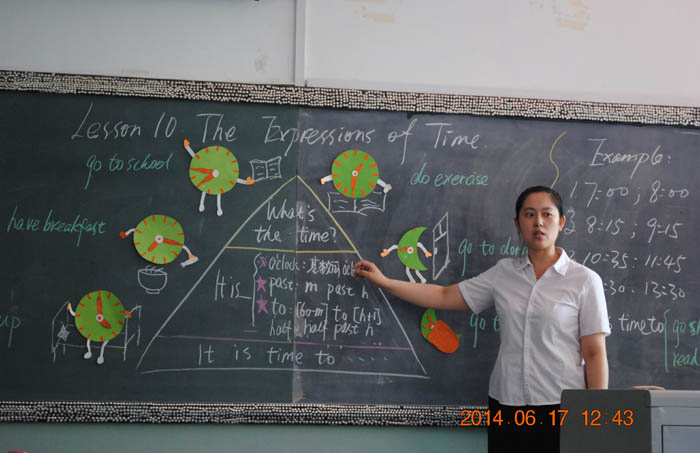 Lesson 10 The Expressions of Time.
go to school
do exerase
Example:
1 7:00 ; 8:00
2 8:15 ; 9:15
10:35 : 11:45
: 13:30
have breakfast
What's
the time?
go to dor
It is
o'clock:
past: m past h
to: [60-m] to [h+1]
half: half past h
up
go t
s time to
go s
read
It is time to
2014.06.17 12:43